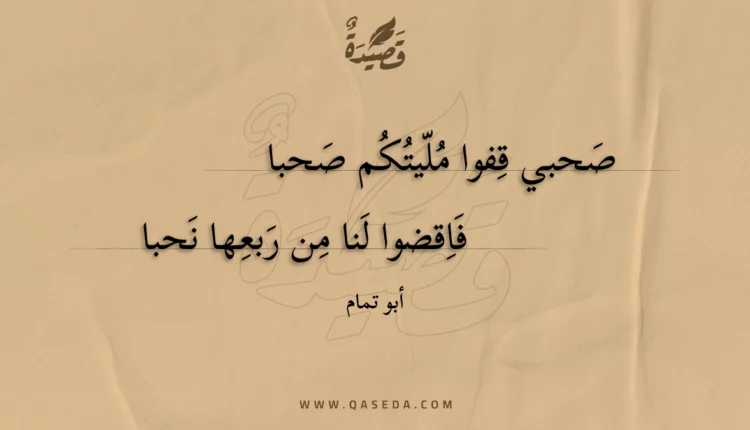 قَصِيدَةٌ
صَحبي قِفوا مُلّيتُكُم صَحبا
فَاِقضوا لَنا مِن رَبعِها نَحبا
أبو تمام
WWW.QASEDA.COM